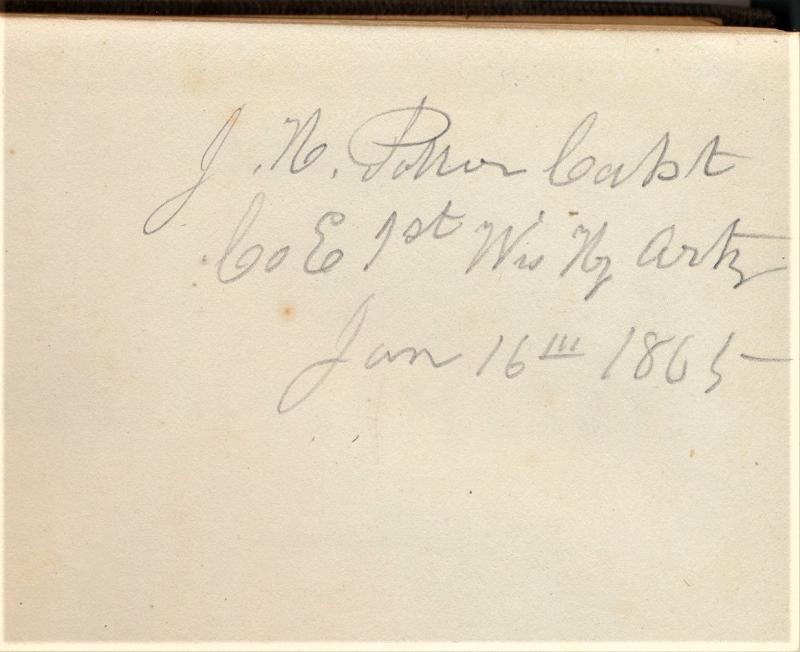 J. H. Potter Capt
Co E 1st Wis Hy Arty
Jan 16th 1865